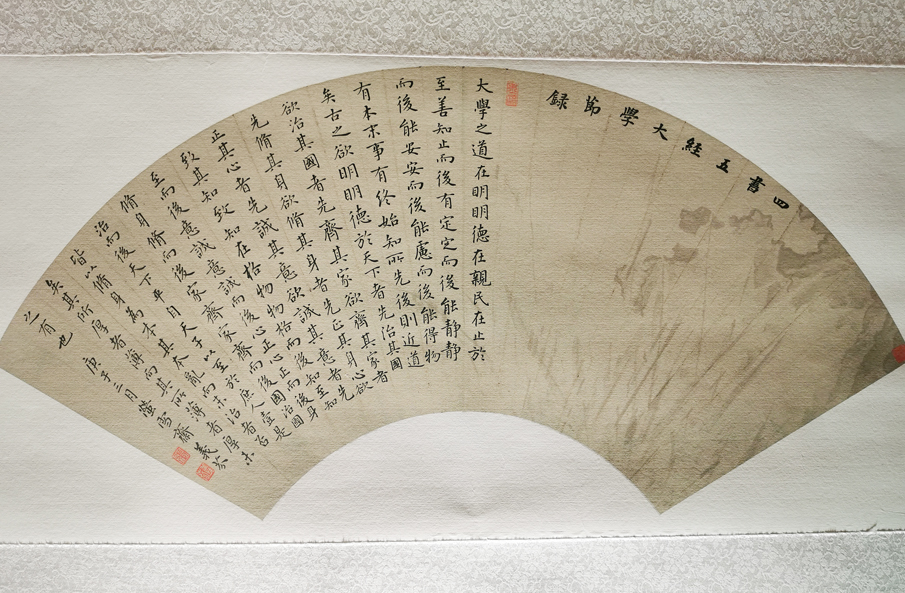 四書五經大學節録
大學之道在明明德在親民在止於
至善知止而後有定定而後能靜靜
而後能安安而後能慮而後能得物
有本末事有終始知所先後則近道
矣古之欲明明德於天下者先治其國
欲治其國者先齊其家欲齊其家者
先脩其身欲脩其身者先正其心欲
正其心者先誠其意欲誠其意者先
致其知致知在格物物格而後知至知
至而後意誠意誠而後心正心正而後身
脩身脩而後家齊家齊而後國治國
治而後天下平自天子以至於庶人壹是
皆以脩身為本其本亂而末治者否
矣其所厚者薄而其所薄者厚未
之有也 庚子三月螢雪齋